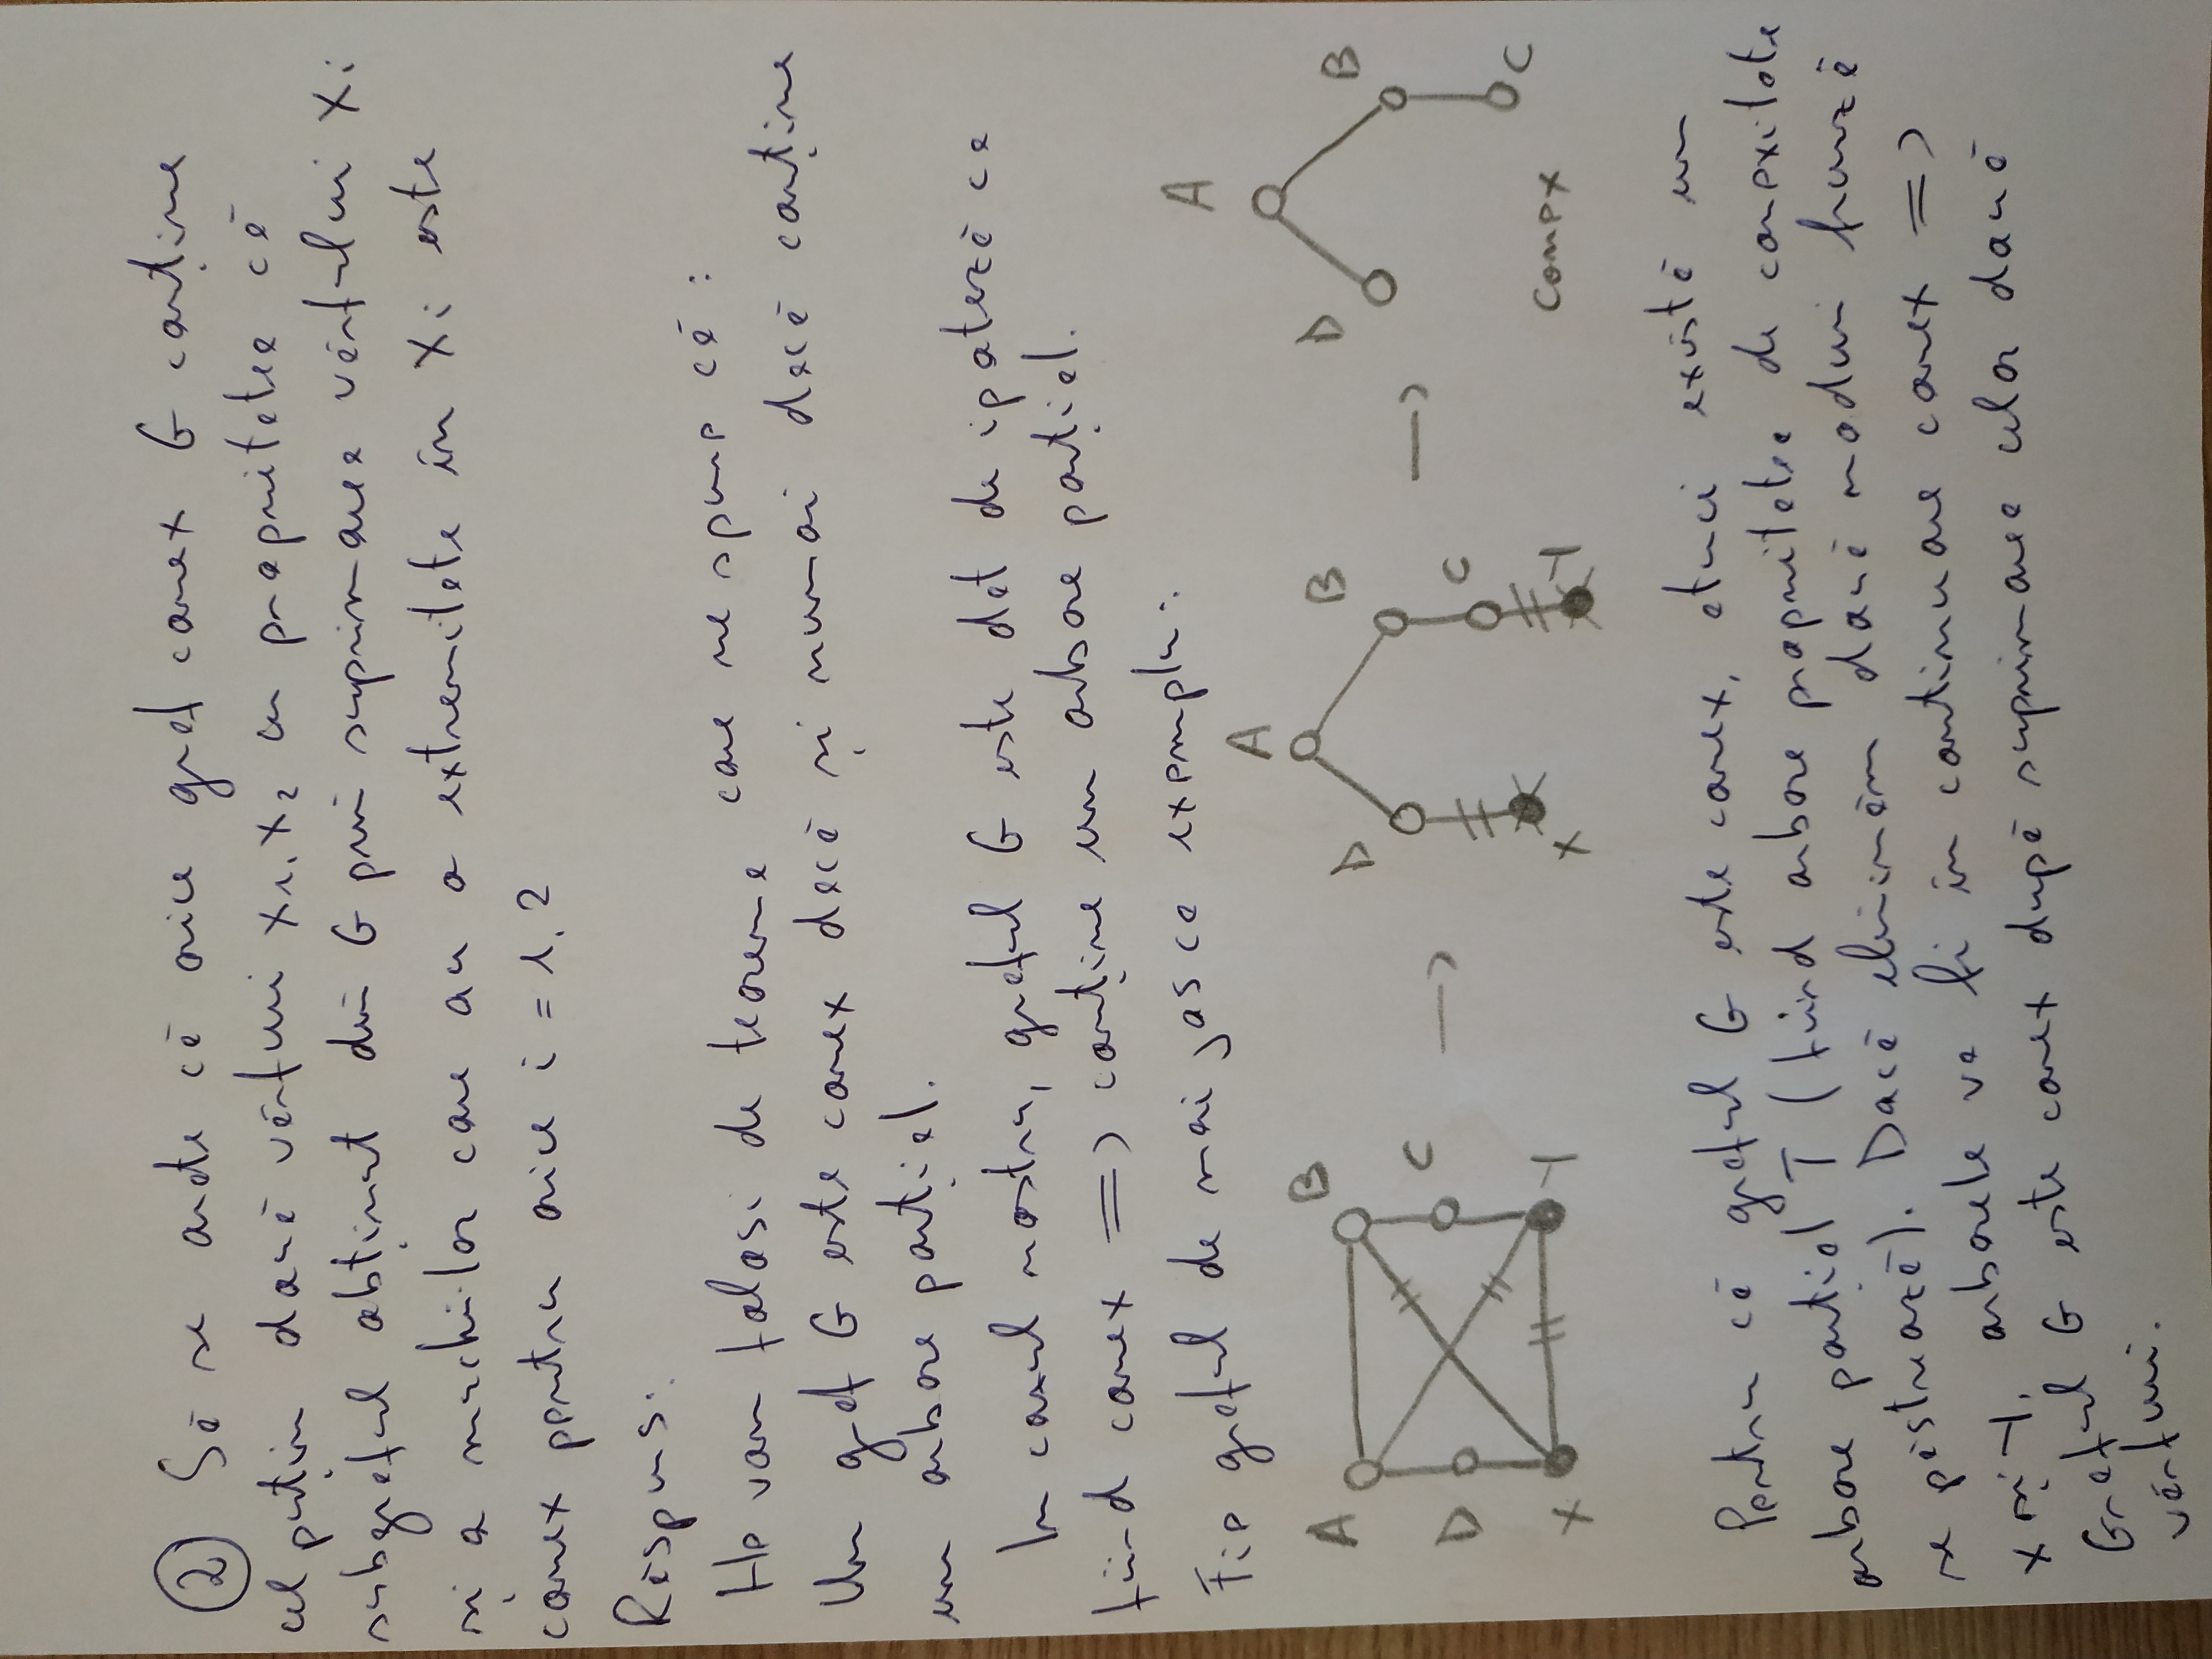 ② Să se arate că orice graf conex G conține
cel puțin două vârfuri x1, x2 cu proprietatea că
subgraful obținut din G prin suprimarea vârfului Xi
și a muchiilor care au o extremitate în Xi este
conex pentru orice i = 1, 2
Răspuns:
Ne vom folosi de teorema care ne spune că:
Un graf G este conex dacă și numai dacă conține
un arbore parțial.
In cazul nostru, graful G este dat de ipoteză ca
fiind conex => conține un arbore parțial.
Fie graful de mai jos ca exemplu:
A B D C X Y
→
A D B C X Y
→
A D B C
conex
Pentru că graful G este conex, atunci există un
arbore parțial T (fiind arbore proprietatea de conexitate
se păstrează). Dacă eliminăm două noduri frunză
x și y, arborele va fi în continuare conex =>
Graful G este conex după suprimarea celor două
vârfuri.